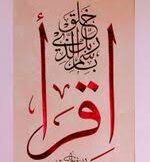 اقرأ
باسم ربك الذي خلق